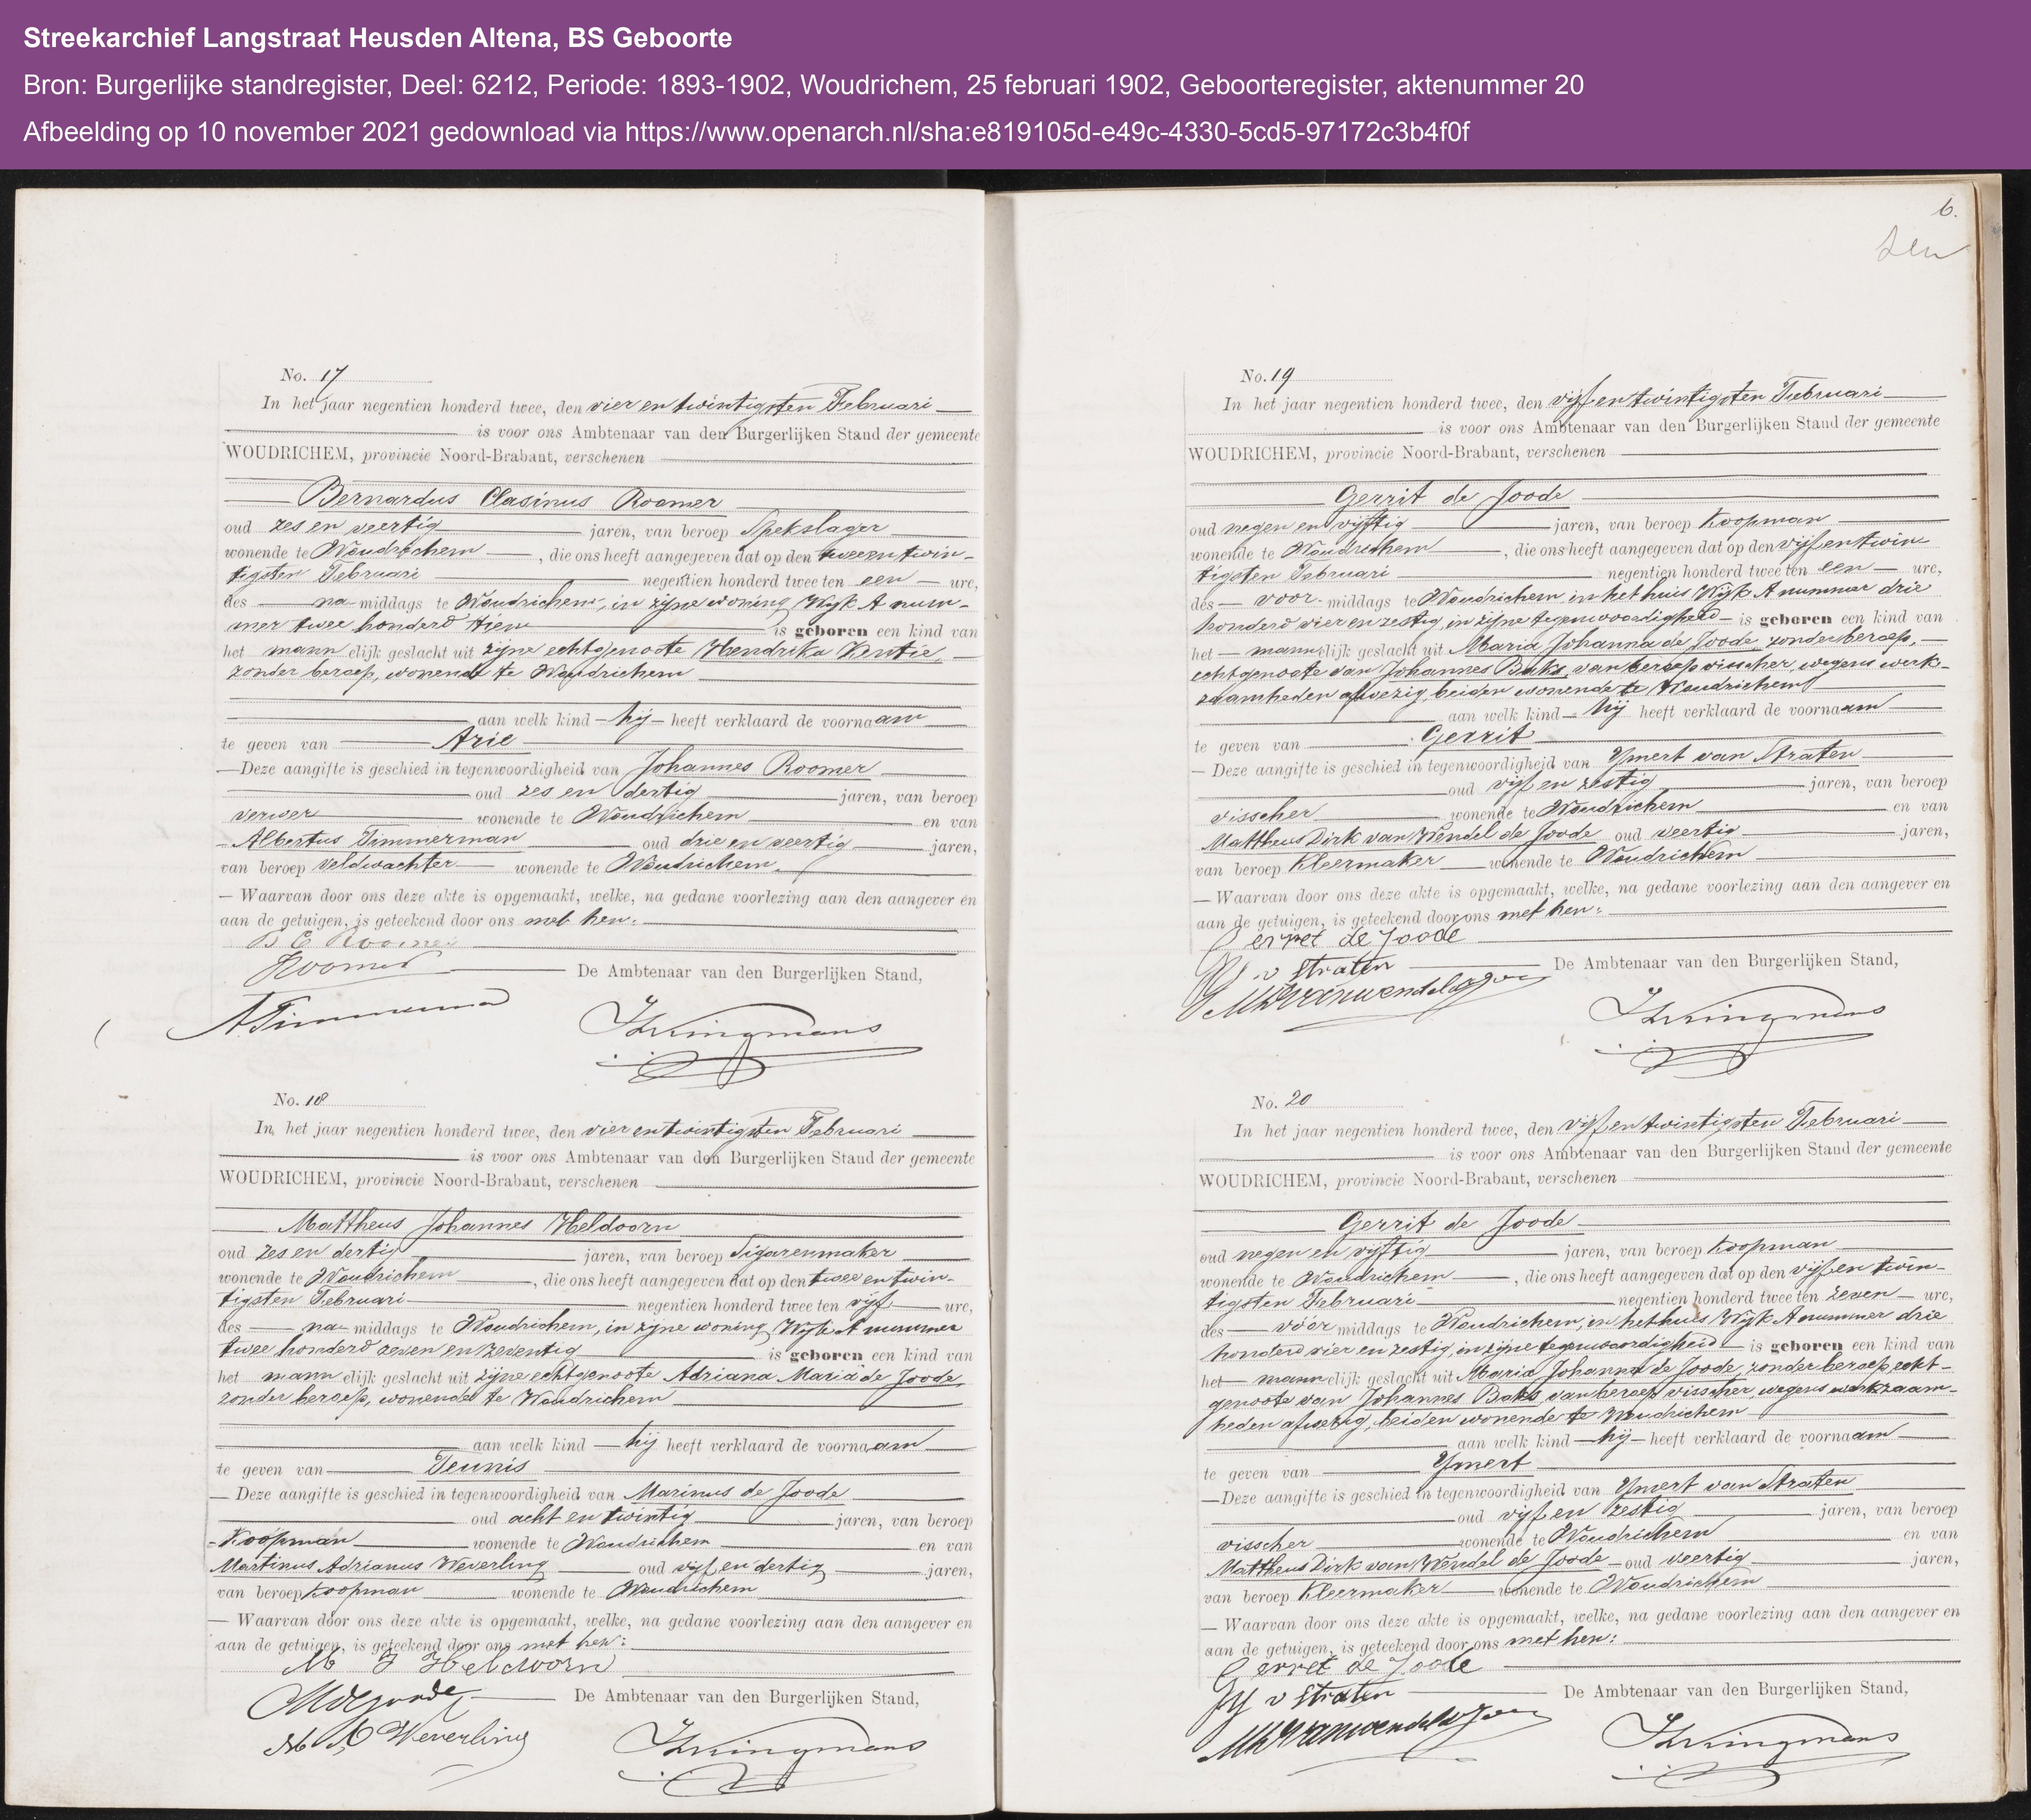 Streekarchief Langstraat Heusden Altena, BS Geboorte
Bron: Burgerlijke standregister, Deel: 6212, Periode: 1893-1902, Woudrichem, 25 februari 1902, Geboorteregister, aktenummer 20
Afbeelding op 10 november 2021 gedownload via https://www.openarch.nl/sha:e819105d-e49c-4330-5cd5-97172c3b4f0f
No. 17
In het jaar negentien honderd twee, den vier en twintigsten Februari
is voor ons Ambtenaar van den Burgerlijken Stand der gemeente
WOUDRICHEM, provincie Noord-Brabant, verschenen
Bernardus Clasinus Roomer
oud zes en veertig jaren, van beroep Spekslager
wonende te Woudrichem, die ons heeft aangegeven dat op den tweeentwin-
tigsten Februari negentien honderd twee ten een ure,
des na middags te Woudrichem, in zijne woning, Wijk A num-
mer twee honderd tien is geboren een kind van
het mannelijk geslacht uit zijne echtgenoote Hendrika Kentie,
zonder beroep, wonende te Woudrichem
aan welk kind hij heeft verklaard de voornaam
te geven van Arie
Deze aangifte is geschied in tegenwoordigheid van Johannes Roomer
oud zes en dertig jaren, van beroep
verwer wonende te Woudrichem en van
Albertus Timmerman oud drie en veertig jaren,
van beroep veldwachter wonende te Woudrichem.
Waarvan door ons deze akte is opgemaakt, welke, na gedane voorlezing aan den aangever en
aan de getuigen, is geteekend door ons met hen:
B C Roomer
JRoomer De Ambtenaar van den Burgerlijken Stand,
ATimmerman
No. 18
In het jaar negentien honderd twee, den vier en twintigsten Februari
is voor ons Ambtenaar van den Burgerlijken Stand der gemeente
WOUDRICHEM, provincie Noord-Brabant, verschenen
Mattheus Johannes Heldoorn
oud zes en dertig jaren, van beroep Sigarenmaker
wonende te Woudrichem, die ons heeft aangegeven dat op den twee en twin-
tigsten Februari negentien honderd twee ten vijf ure,
des na middags te Woudrichem, in zijne woning, Wijk A nummer
twee honderd zeven en zeventig is geboren een kind van
het mannelijk geslacht uit zijne echtgenoote Adriana Maria de Joode,
zonder beroep, wonende te Woudrichem
aan welk kind hij heeft verklaard de voornaam
te geven van Teunis
Deze aangifte is geschied in tegenwoordigheid van Marinus de Joode
oud acht en twintig jaren, van beroep
Koopman wonende te Woudrichem en van
Martinus Adrianus Weverling oud vijf en dertig jaren,
van beroep Koopman wonende te Woudrichem
Waarvan door ons deze akte is opgemaakt, welke, na gedane voorlezing aan den aangever en
aan de getuigen, is geteekend door ons met hen:
M J Heldoorn
De Ambtenaar van den Burgerlijken Stand,
M A Weverling
6.
No. 19
In het jaar negentien honderd twee, den vijf en twintigsten Februari
is voor ons Ambtenaar van den Burgerlijken Stand der gemeente
WOUDRICHEM, provincie Noord-Brabant, verschenen
Gerrit de Joode
oud negen en vijftig jaren, van beroep Koopman
wonende te Woudrichem, die ons heeft aangegeven dat op den vijf en twin
tigsten Februari negentien honderd twee ten een ure,
des voor middags te Woudrichem in het huis Wijk A nummer drie
honderd vier en zestig, in zijne tegenwoordigheid is geboren een kind van
het mannelijk geslacht uit Maria Johanna de Joode, zonder beroep,
echtgenoote van Johannes Baks, van beroep visscher, wegens werk-
zaamheden afwezig, beiden wonende te Woudrichem
aan welk kind hij heeft verklaard de voornaam
te geven van Gerrit
Deze aangifte is geschied in tegenwoordigheid van Ymert van Straten
oud vijf en zestig jaren, van beroep
visscher wonende te Woudrichem en van
Mattheus Dirk van Wendel de Joode oud veertig jaren,
van beroep Kleermaker wonende te Woudrichem
Waarvan door ons deze akte is opgemaakt, welke, na gedane voorlezing aan den aangever en
aan de getuigen, is geteekend door ons met hen:
Gerret de Joode
v Straten De Ambtenaar van den Burgerlijken Stand,
No. 20
In het jaar negentien honderd twee, den vijf en twintigsten Februari
is voor ons Ambtenaar van den Burgerlijken Stand der gemeente
WOUDRICHEM, provincie Noord-Brabant, verschenen
Gerrit de Joode
oud negen en vijftig jaren, van beroep Koopman
wonende te Woudrichem, die ons heeft aangegeven dat op den vijf en twin-
tigsten Februari negentien honderd twee ten zeven ure,
des vóór middags te Woudrichem, in het huis Wijk A nummer drie
honderd vier en zestig, in zijne tegenwoordigheid is geboren een kind van
het mannelijk geslacht uit Maria Johanna de Joode, zonder beroep, echt-
genoote van Johannes Baks, van beroep visscher, wegens werkzaam-
heden afwezig, beiden wonende te Woudrichem
aan welk kind hij heeft verklaard de voornaam
te geven van Ymert
Deze aangifte is geschied in tegenwoordigheid van Ymert van Straten
oud vijf en zestig jaren, van beroep
visscher wonende te Woudrichem en van
Mattheus Dirk van Wendel de Joode oud veertig jaren,
van beroep Kleermaker wonende te Woudrichem
Waarvan door ons deze akte is opgemaakt, welke, na gedane voorlezing aan den aangever en
aan de getuigen, is geteekend door ons met hen:
Gerret de Joode
v Straten De Ambtenaar van den Burgerlijken Stand,